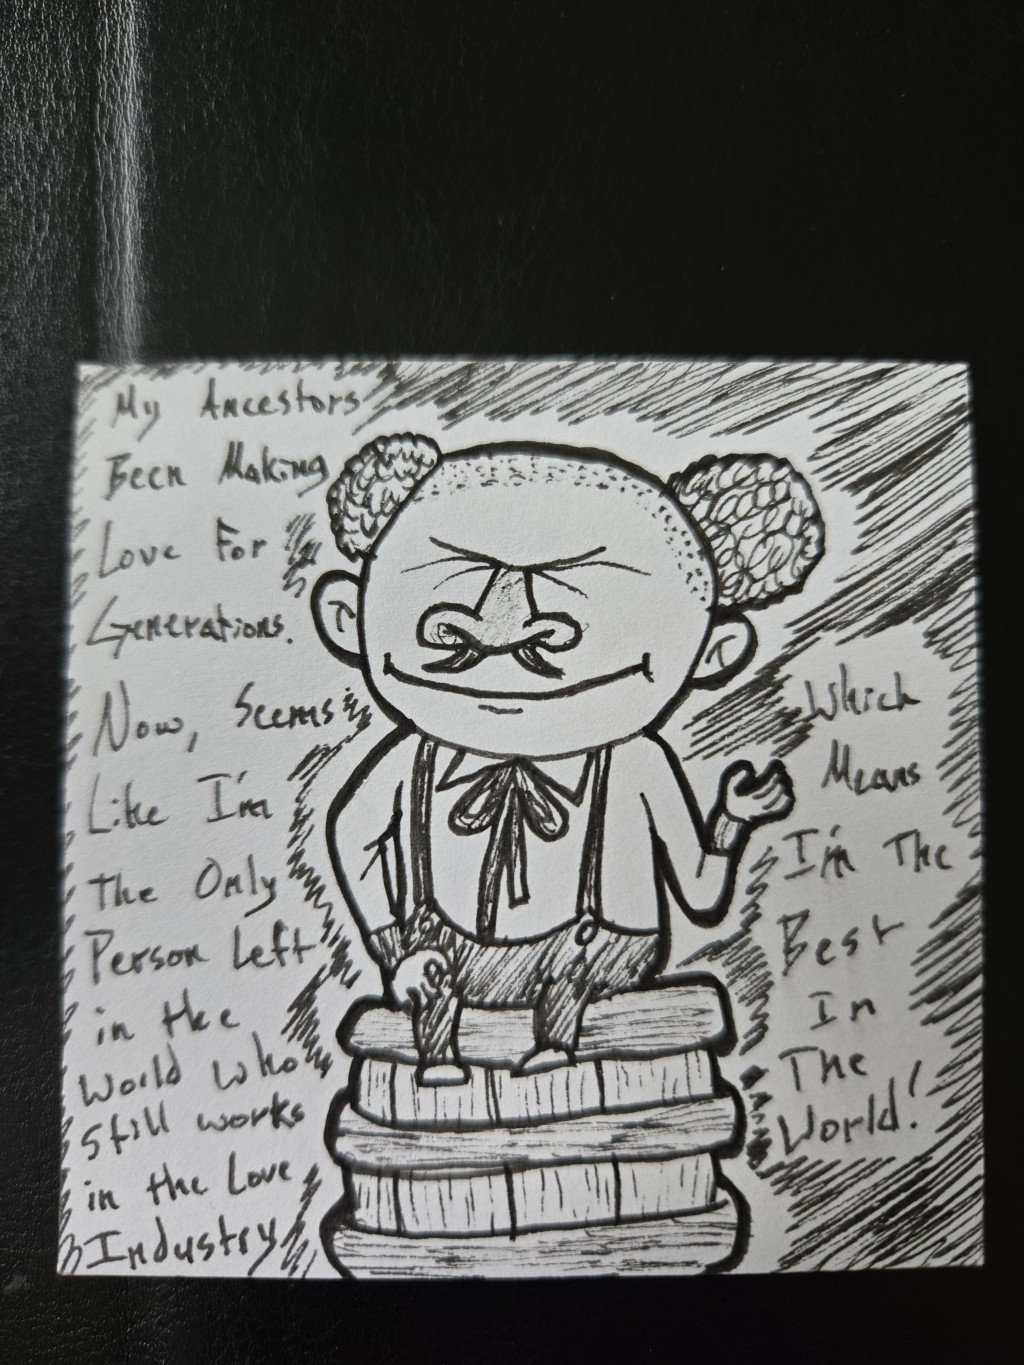 My Ancestors
Been Making
Love For
Generations.
Now, Seems
Like I'm
the Only
Person Left
in the
World who
Still works
in the Love
Industry
Which
Means
I'm The
Best
In
The
World!